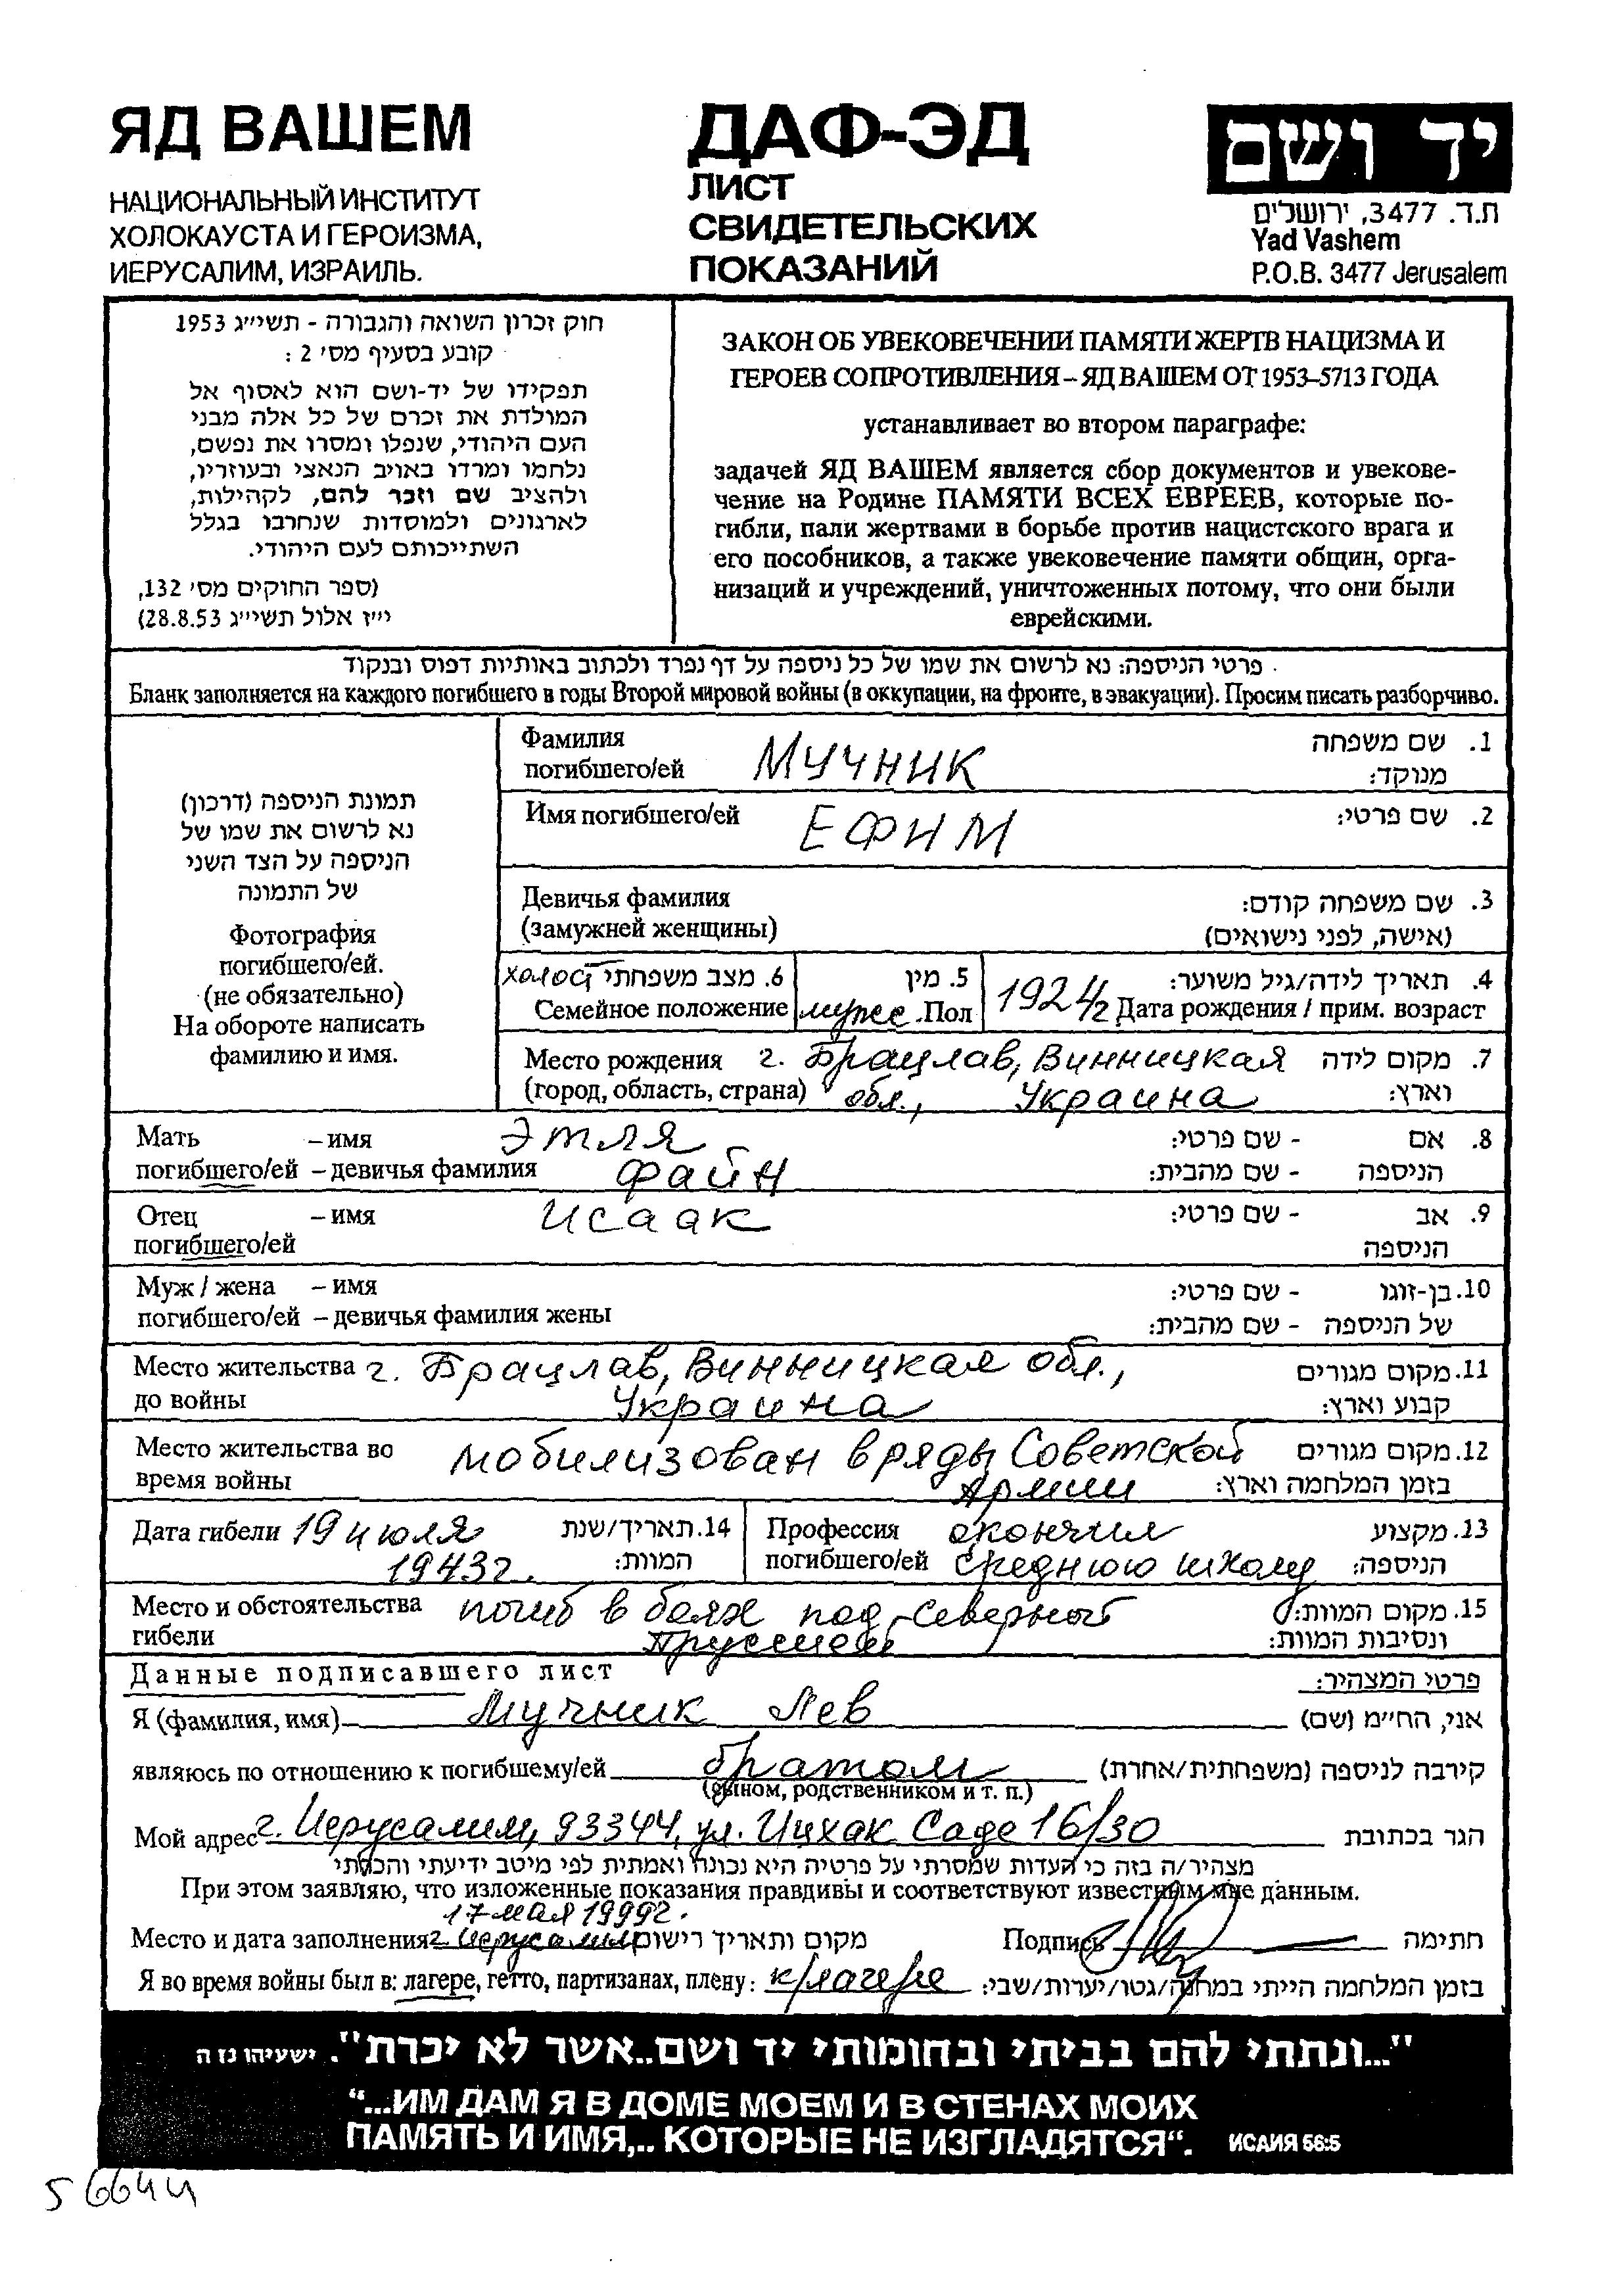 ЯД ВАШЕМ
НАЦИОНАЛЬНЫЙ ИНСТИТУТ
ХОЛОКАУСТА И ГЕРОИЗМА,
ИЕРУСАЛИМ, ИЗРАИЛЬ.
ДАФ-ЭД
ЛИСТ
СВИДЕТЕЛЬСКИХ
ПОКАЗАНИЙ
יד ושם
ת.ד. 3477, ירושלים
Yad Vashem
P.O.B. 3477 Jerusalem
חוק זכרון השואה והגבורה - תשי״ג 1953
קובע בסעיף מס׳ 2 :
תפקידו של יד-ושם הוא לאסוף אל
המולדת את זכרם של כל אלה מבני
העם היהודי, שנפלו ומסרו את נפשם,
נלחמו ומרדו באויב הנאצי ובעוזריו,
ולהציב שם וזכר להם, לקהילות,
לארגונים ולמוסדות שנחרבו בגלל
השתייכותם לעם היהודי.
(ספר החוקים מס׳ 132,
י״ז אלול תשי״ג 28.8.53)
ЗАКОН ОБ УВЕКОВЕЧЕНИИ ПАМЯТИ ЖЕРТВ НАЦИЗМА И
ГЕРОЕВ СОПРОТИВЛЕНИЯ – ЯД ВАШЕМ ОТ 1953–5713 ГОДА
устанавливает во втором параграфе:
задачей ЯД ВАШЕМ является сбор документов и увекове-
чение на Родине ПАМЯТИ ВСЕХ ЕВРЕЕВ, которые по-
гибли, пали жертвами в борьбе против нацистского врага и
его пособников, а также увековечение памяти общин, орга-
низаций и учреждений, уничтоженных потому, что они были
еврейскими.
פרטי הניספה: נא לרשום את שמו של כל ניספה על דף נפרד ולכתוב באותיות דפוס ובנקוד
Бланк заполняется на каждого погибшего в годы Второй мировой войны (в оккупации, на фронте, в эвакуации). Просим писать разборчиво.
תמונת הניספה (דרכון)
נא לרשום את שמו של
הניספה על הצד השני
של התמונה
Фотография
погибшего/ей.
(не обязательно)
На обороте написать
фамилию и имя.
Фамилия МУЧНИК 1. שם משפחה
погибшего/ей מנוקד:
Имя погибшего/ей ЕФИМ 2. שם פרטי:
Девичья фамилия 3. שם משפחה קודם:
(замужней женщины) (אישה, לפני נישואים)
холост 6. מצב משפחתי 5. מין 4. תאריך לידה/גיל משוער:
Семейное положение муж. Пол 1924 Дата рождения / прим. возраст
Место рождения г. Брацлав, Винницкая 7. מקום לידה
(город, область, страна) обл., Украина וארץ:
Мать – имя Этля 8. אם - שם פרטי:
погибшего/ей – девичья фамилия Файн הניספה - שם מהבית:
Отец – имя Исаак 9. אב - שם פרטי:
погибшего/ей הניספה
Муж / жена – имя 10. בן-זוגו - שם פרטי:
погибшего/ей – девичья фамилия жены של הניספה - שם מהבית:
Место жительства г. Брацлав, Винницкая обл., 11. מקום מגורים
до войны Украина קבוע וארץ:
Место жительства во мобилизован в ряды Советской 12. מקום מגורים
время войны Армии בזמן המלחמה וארץ:
Дата гибели 19 июля 14. תאריך/שנת Профессия окончил 13. מקצוע
1943г. המוות: погибшего/ей среднюю школу הניספה:
Место и обстоятельства погиб в боях под Северной 15. מקום המוות:
гибели Пруссией ונסיבות המוות:
Данные подписавшего лист פרטי המצהיר:
Я (фамилия, имя) Мучник Лев אני, הח״מ (שם)
являюсь по отношению к погибшему/ей братом קירבה לניספה (משפחתית/אחרת)
(сыном, родственником и т. п.)
Мой адрес г. Иерусалим, 93344, ул. Ицхак Саде 16/30 הגר בכתובת
מצהיר/ה בזה כי העדות שמסרתי על פרטיה היא נכונה ואמתית לפי מיטב ידיעתי והכרתי
При этом заявляю, что изложенные показания правдивы и соответствуют известным мне данным.
17 мая 1999г.
Место и дата заполнения г. Иерусалим מקום ותאריך רישום Подпись חתימה
Я во время войны был в: лагере, гетто, партизанах, плену: к/лагере בזמן המלחמה הייתי במחנה/גטו/יערות/שבי:
"...ונתתי להם בביתי ובחומותי יד ושם..אשר לא יכרת". ישעיהו נז ה
"...ИМ ДАМ Я В ДОМЕ МОЕМ И В СТЕНАХ МОИХ
ПАМЯТЬ И ИМЯ,.. КОТОРЫЕ НЕ ИЗГЛАДЯТСЯ". ИСАИЯ 56:5